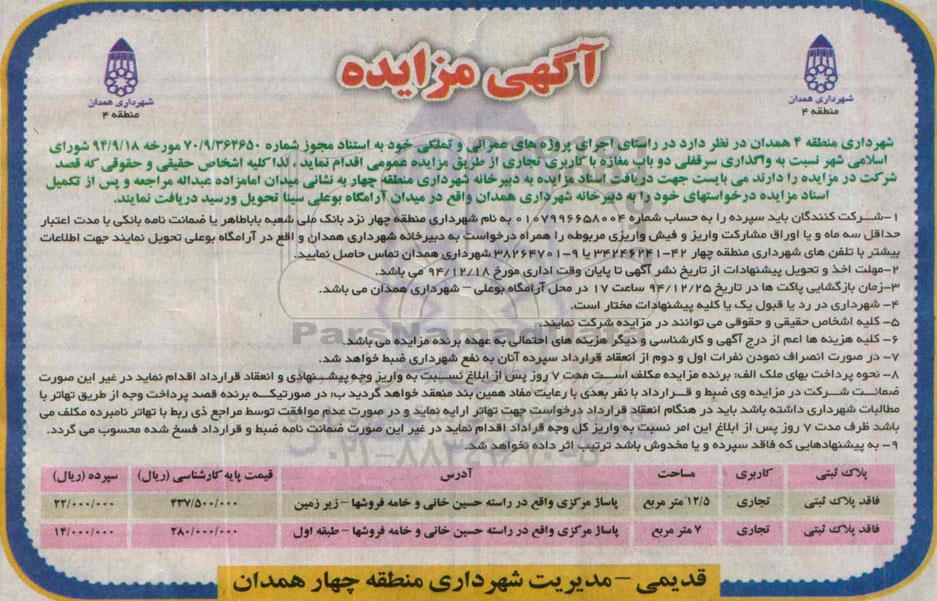 آگهی مزایده
شهرداری همدان
منطقه ۴
شهرداری همدان
منطقه ۴
شهرداری منطقه ۴ همدان در نظر دارد در راستای اجرای پروژه های عمرانی و تملکی خود به استناد مجوز شماره ۷۰/۹/۳۶۴۶۵۰ مورخه ۹۴/۹/۱۸ شورای
اسلامی شهر نسبت به واگذاری سرقفلی دو باب مغازه با کاربری تجاری از طریق مزایده عمومی اقدام نماید ، لذا کلیه اشخاص حقیقی و حقوقی که قصد
شرکت در مزایده را دارند می بایست جهت دریافت اسناد مزایده به دبیرخانه شهرداری منطقه چهار به نشانی میدان امامزاده عبداله مراجعه و پس از تکمیل
اسناد مزایده درخواستهای خود را به دبیرخانه شهرداری همدان واقع در میدان آرامگاه بوعلی سینا تحویل ورسید دریافت نمایند.
۱-شرکت کنندگان باید سپرده را به حساب شماره ۰۱۰۷۹۹۶۶۵۸۰۰۴ به نام شهرداری منطقه چهار نزد بانک ملی شعبه باباطاهر یا ضمانت نامه بانکی با مدت اعتبار
حداقل سه ماه و یا اوراق مشارکت واریز و فیش واریزی مربوطه را همراه درخواست به دبیرخانه شهرداری همدان و اقع در آرامگاه بوعلی تحویل نمایند جهت اطلاعات
بیشتر با تلفن های شهرداری منطقه چهار ۴۲-۳۴۲۴۶۲۴۱ یا ۹-۳۸۲۶۴۷۰۱ شهرداری همدان تماس حاصل نمایید.
۲-مهلت اخذ و تحویل پیشنهادات از تاریخ نشر آگهی تا پایان وقت اداری مورخ ۹۴/۱۲/۱۸ می باشد.
۳-زمان بازگشایی پاکت ها در تاریخ ۹۴/۱۲/۲۵ ساعت ۱۷ در محل آرامگاه بوعلی - شهرداری همدان می باشد.
۴- شهرداری در رد یا قبول یک یا کلیه پیشنهادات مختار است.
۵- کلیه اشخاص حقیقی و حقوقی می توانند در مزایده شرکت نمایند.
۶- کلیه هزینه ها اعم از درج آگهی و کارشناسی و دیگر هزینه های احتمالی به عهده برنده مزایده می باشد.
۷- در صورت انصراف نمودن نفرات اول و دوم از انعقاد قرارداد سپرده آنان به نفع شهرداری ضبط خواهد شد.
۸- نحوه پرداخت بهای ملک الف: برنده مزایده مکلف است مدت ۷ روز پس از ابلاغ نسبت به واریز وجه پیشنهادی و انعقاد قرارداد اقدام نماید در غیر این صورت
ضمانت شرکت در مزایده وی ضبط و قرارداد با نفر بعدی با رعایت مفاد همین بند منعقد خواهد گردید ب: در صورتیکه برنده قصد پرداخت وجه از طریق تهاتر با
مطالبات شهرداری داشته باشد باید در هنگام انعقاد قرارداد درخواست جهت تهاتر ارایه نماید و در صورت عدم موافقت توسط مراجع ذی ربط با تهاتر نامبرده مکلف می
باشد ظرف مدت ۷ روز پس از ابلاغ این امر نسبت به واریز کل وجه قراداد اقدام نماید در غیر این صورت ضمانت نامه ضبط و قرارداد فسخ شده محسوب می گردد.
۹- به پیشنهادهایی که فاقد سپرده و یا مخدوش باشد ترتیب اثر داده نخواهد شد.
پلاک ثبتی کاربری مساحت آدرس قیمت پایه کارشناسی (ریال) سپرده (ریال)
فاقد پلاک ثبتی تجاری ۱۲/۵ متر مربع پاساژ مرکزی واقع در راسته حسین خانی و خامه فروشها - زیر زمین ۴۳۷/۵۰۰/۰۰۰ ۲۲/۰۰۰/۰۰۰
فاقد پلاک ثبتی تجاری ۷ متر مربع پاساژ مرکزی واقع در راسته حسین خانی و خامه فروشها - طبقه اول ۲۸۰/۰۰۰/۰۰۰ ۱۴/۰۰۰/۰۰۰
قدیمی - مدیریت شهرداری منطقه چهار همدان
ParsNamadData